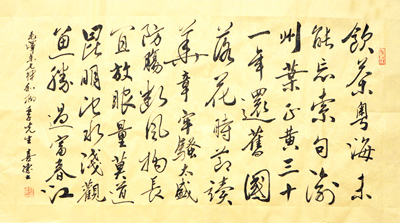 飲茶粵海未
能忘索句渝
州葉正黃三十
一年還舊國
落花時節讀
華章牢騷太盛
防腸斷風物長
宜放眼量莫道
昆明池水淺觀
魚勝過富春江
毛澤東七律和柳亞先生